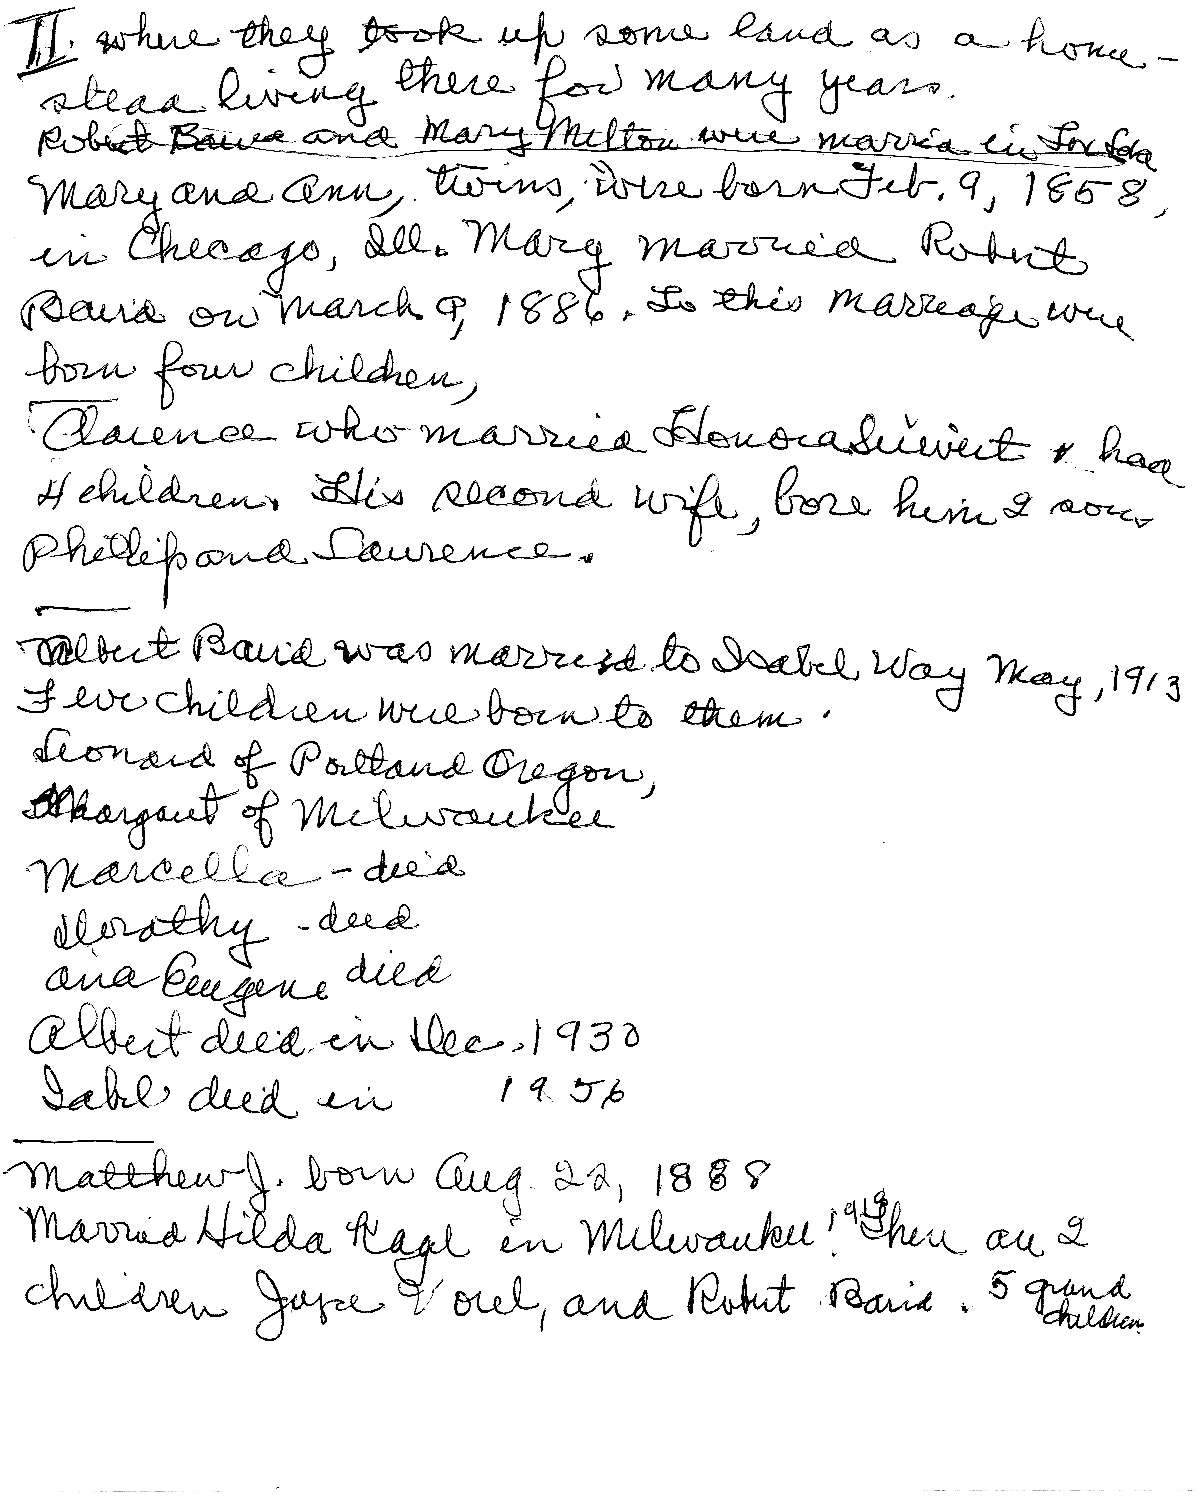 II. where they took up some land as a home-
stead living there for many years.
Robert Baird and Mary Melton were married in
Mary and Ann, twins, were born Feb. 9, 1858,
in Chicago, Ill. Mary married Robert
Baird on March 9, 1886. To this marriage were
born four children,
Clarence who married Honora Seivert & had
4 children. His second wife, bore him 2 sons
Phillip and Laurence.
Albert Baird was married to Isabel Way May, 1913
Five children were born to them.
Leonard of Portland Oregon,
Margaret of Milwaukee
Marcella - died
Dorothy - died
and Eugene died
Albert died in Dec. 1930
Isabel died in 1956
Matthew J. born Aug. 22, 1888
Married Hilda Kagl in Milwaukee. 1918 There are 2
children Joyce Vorel, and Robert Baird. 5 grand
children